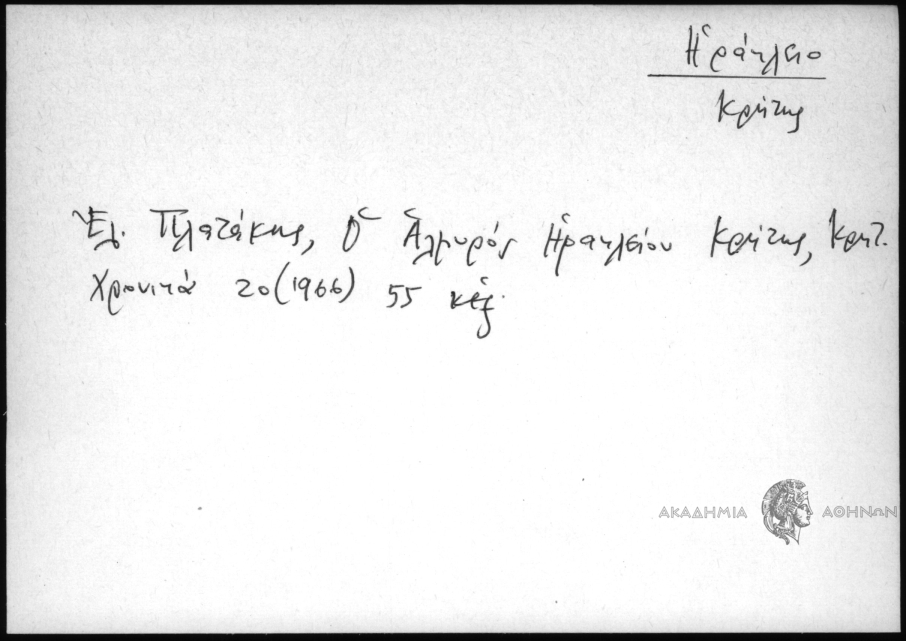 Ἡράκλειο
Κρήτης
Ἐλ. Πλατάκης, Ὁ Ἀλμυρός Ἡρακλείου Κρήτης, Κρητ.
Χρονικά 20 (1966) 55 κἑξ.
ΑΚΑΔΗΜΙΑ ΑΘΗΝΩΝ